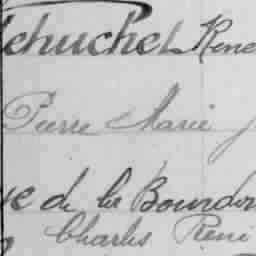 ehuchet Rene
Pierre Marie
de la Bourdon
Charles René